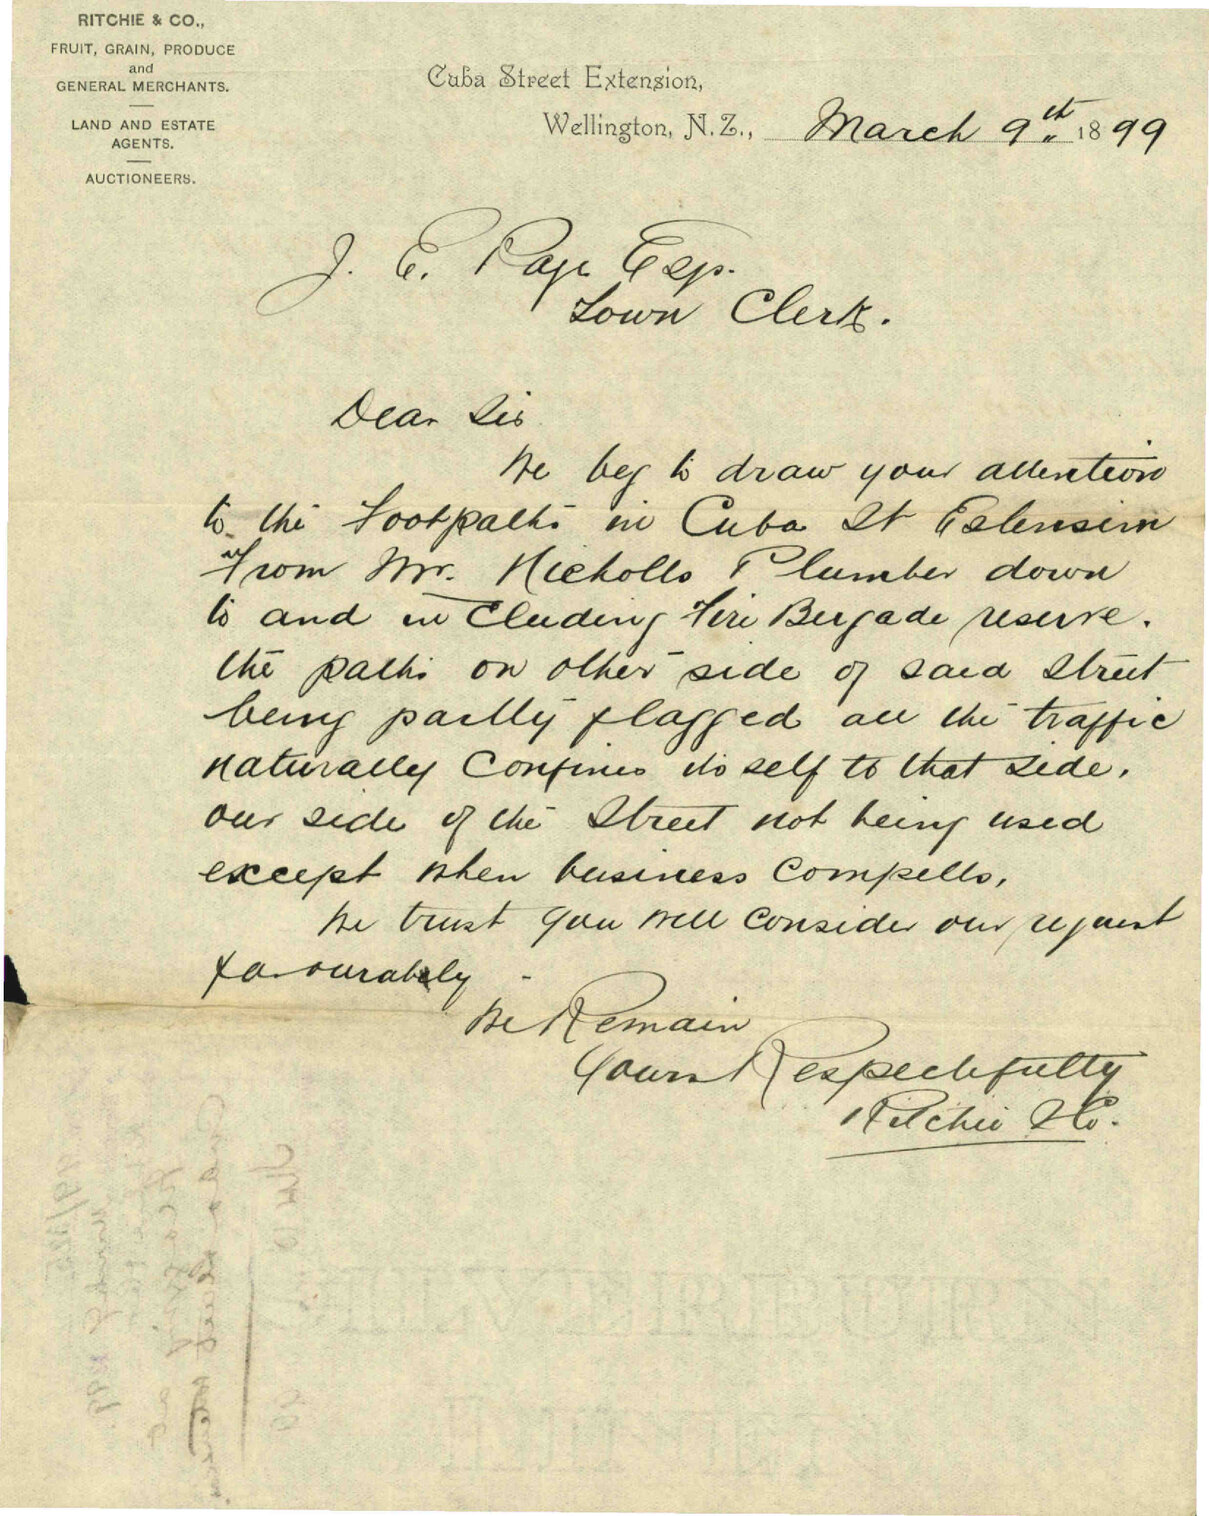 RITCHIE & CO.,
FRUIT, GRAIN, PRODUCE
and
GENERAL MERCHANTS.
LAND AND ESTATE
AGENTS.
AUCTIONEERS.
Cuba Street Extension,
Wellington, N.Z., March 9th 1899
J. E. Page Esq.
Town Clerk.
Dear Sir
We beg to draw your attention
to the Footpaths in Cuba St Extension
From Mr. Nicholls Plumber down
to and in Cluding Fire Bergade reserve.
the paths on other side of said Street
being partly flagged all the traffic
naturally Confines its self to that side.
our side of the Street not being used
except when business Compells.
We trust you will Consider our request
favourably -
We Remain
Yours Respectfully
Ritchie & Co.